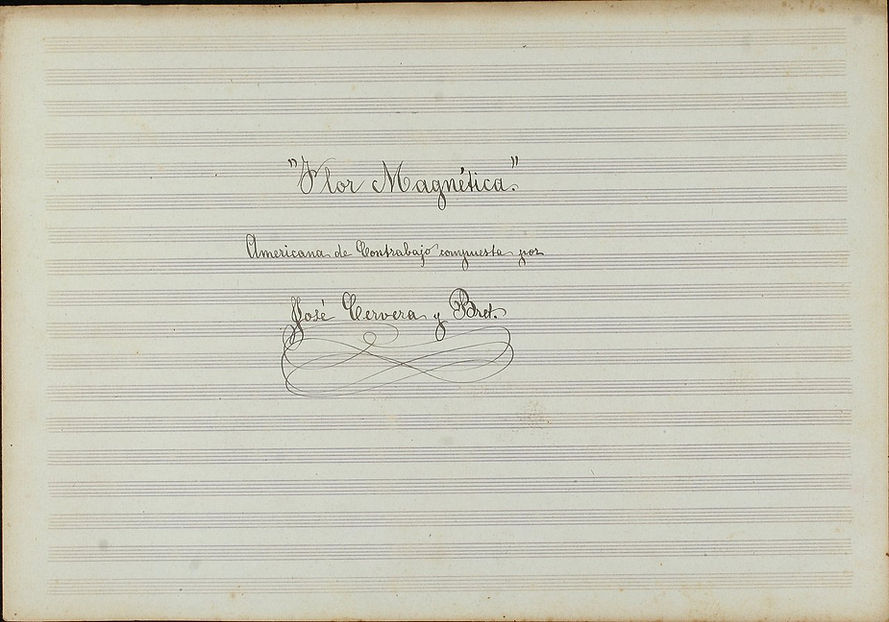 "Flor Magnética".
Americana de Contrabajo compuesta por
José Cervera y Bret.